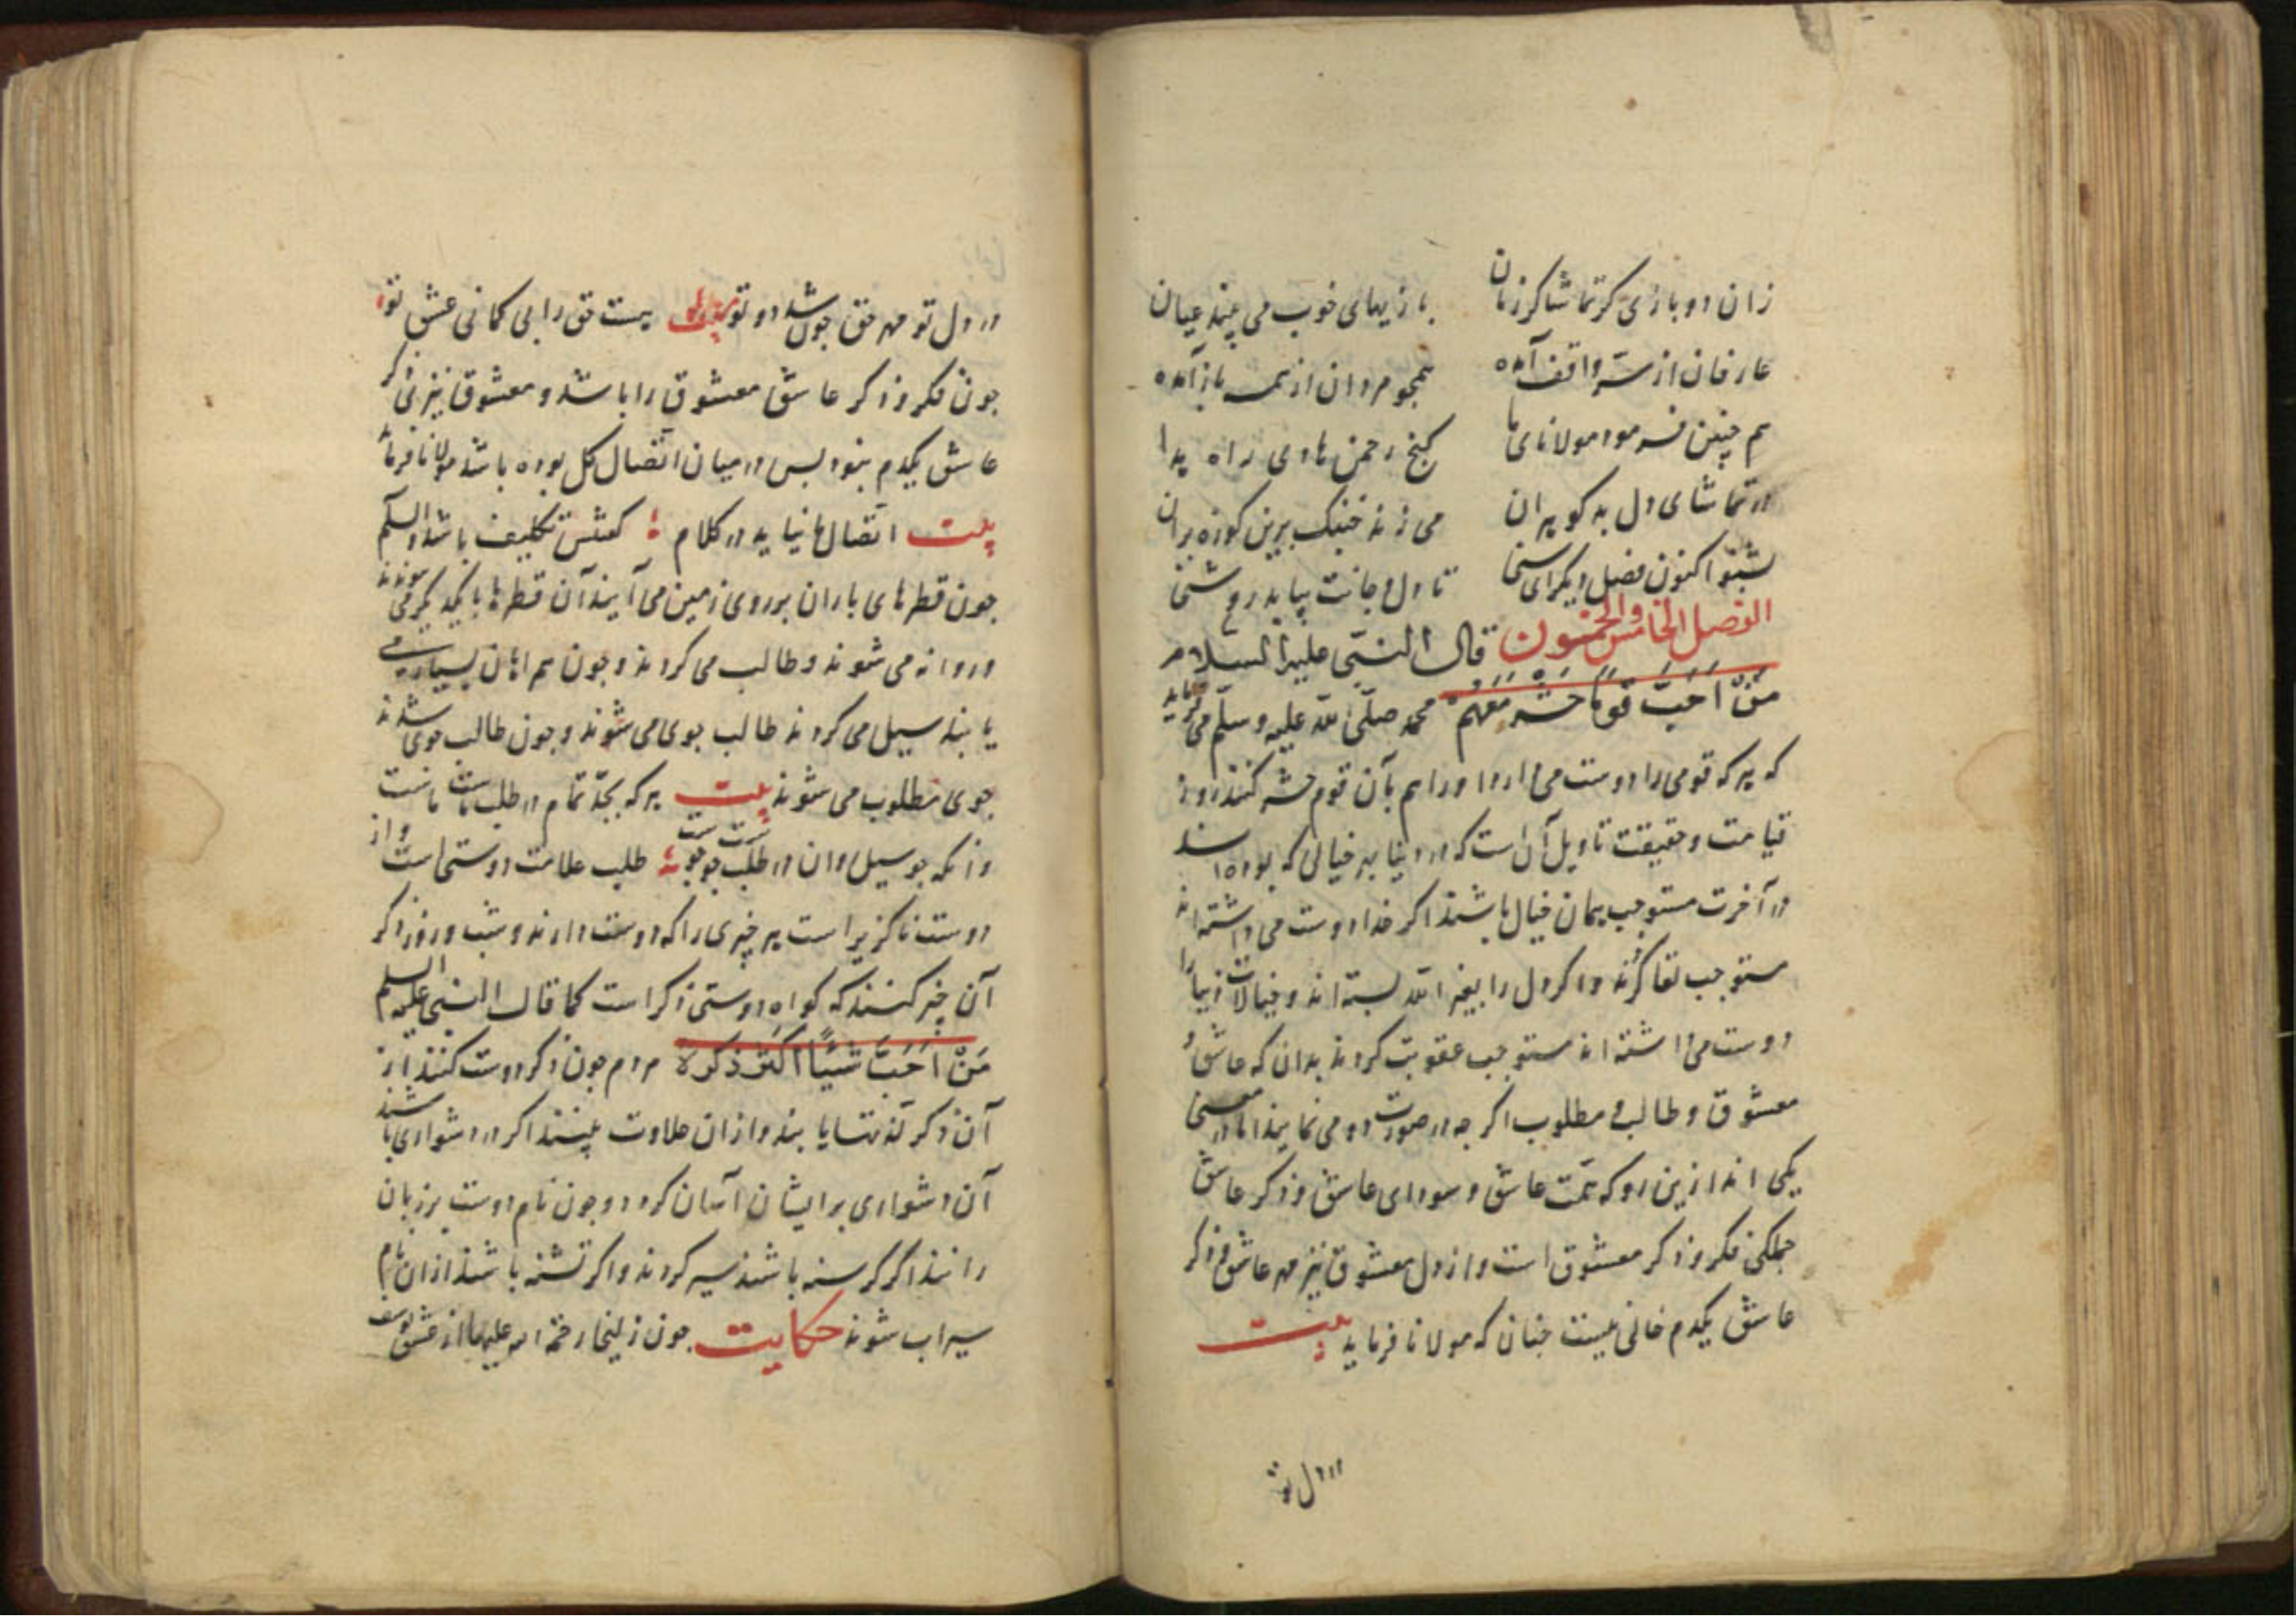 زان دو بازی کر تماشا کر زمان بازیهای خوب می بیند عیان
عارفان از سر واقف آمده همجو مردان از همه باز آمده
هم چنین فرمود مولانای ما گنج رحمن هادی راه هدا
در تماشای دل به کوهران می زند خنبک برین کوزه بران
بشنو اکنون فصل دیکر ای سنی تا دل و جانت بیابد روشنی
الفصل الخامس والخمسون قال النبی علیه السلام
مَنْ اَحَبَّ قَوْمًا حُشِرَ مَعَهُمْ محمد صلّی الله علیه وسلّم می فرماید
که هر که قومی را دوست می دارد اورا هم بآن قوم حشر کنند روز
قیامت و حقیقت تاویل آن است که در دنیا بهر خیالی که بوده اند
در آخرت مستوجب همان خیال باشند اکر خدا دوست می داشته اند
مستوجب لقا کردند و اکر دل را بغیر الله بسته اند و خیالات دنیا را
دوست می داشته اند مستوجب عقوبت کردند بدان که عاشق و
معشوق و طالب و مطلوب اکرجه در صورت دو می نمایند اما در معنی
یکی اند ازین رو که همّت عاشق و سودای عاشق و ذکر عاشق
جملکی فکر و ذکر معشوق است و از دل معشوق نیز مهر عاشق و ذکر
عاشق یکدم خالی نیست جنان که مولانا فرماید بیت
در دل تو
در دل تو مهر حق جون شد دو تو هست حق را بی کمانی عشق تو
جون فکر و ذکر عاشق معشوق را باشد و معشوق نیز بی ذکر
عاشق یکدم نبود بس در میان اتّصال کل بوده باشد مولانا فرماید
بیت اتّصال ها نیاید در کلام کفتنش تکلیف باشد والسلم
جون قطرهای باران بر روی زمین می آیند آن قطرها با یکدیکر می پیوندند
و روانه می شوند و طالب می کردند و جون هم اینان بسیاری
یابند سیل می کردند طالب جوی می شوند و جون طالب جوی شدند
جوی مطلوب می شوند بیت هر که بجدّ تمام در طلب ماست ماست
وانکه جو سیل روان در طلب جوست جوست طلب علامت دوستی است و از
دوست ناکزیر است هر چیزی را که دوست دارند و شب و روز ذکر
آن چیز کنند که کواه دوستی ذکر است کما قال النبی علیه السلم
مَنْ اَحَبَّ شَیْئًا اَکثَرَ ذِکرَهُ مردم جون ذکر دوست کنند از
آن ذکر لذّتها یابند و از آن حلاوت بینند اکر در دشواری باشند
آن دشواری بر ایشان آسان کردد و جون نام دوست بر زبان
رانند اکر کرسنه باشند سیر کردند و اکر تشنه باشند ازان نام
سیراب شوند حکایت جون زلیخا رحمة الله علیها از عشق یوسف